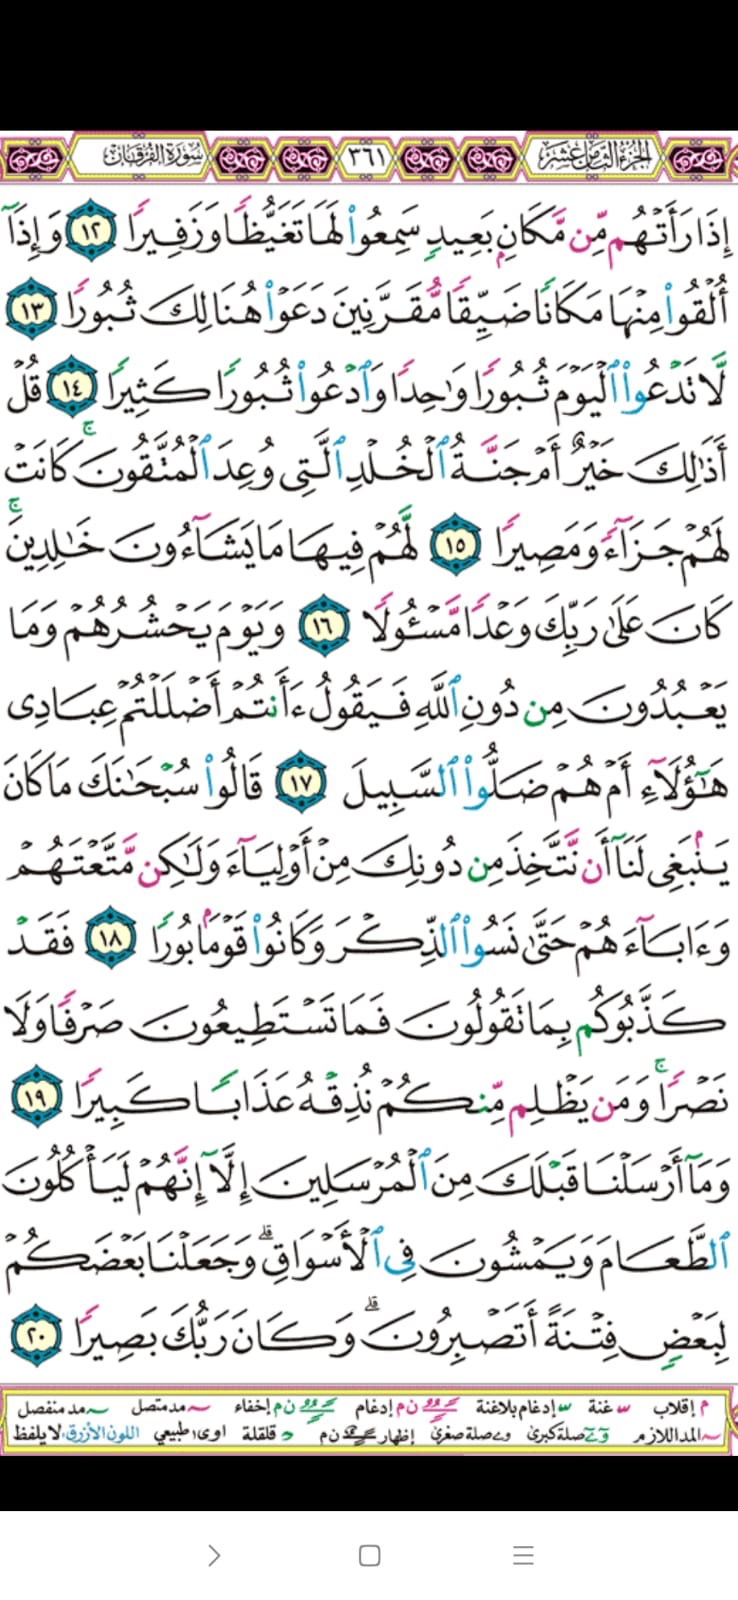 الجزء الثامن عشر ٣٦١ سورة الفرقان
إِذَا رَأَتْهُم مِّن مَّكَانٍۭ بَعِيدٍۢ سَمِعُوا۟ لَهَا تَغَيُّظًۭا وَزَفِيرًۭا ١٢ وَإِذَآ
أُلْقُوا۟ مِنْهَا مَكَانًۭا ضَيِّقًۭا مُّقَرَّنِينَ دَعَوْا۟ هُنَالِكَ ثُبُورًۭا ١٣
لَّا تَدْعُوا۟ ٱلْيَوْمَ ثُبُورًۭا وَٰحِدًۭا وَٱدْعُوا۟ ثُبُورًۭا كَثِيرًۭا ١٤ قُلْ
أَذَٰلِكَ خَيْرٌ أَمْ جَنَّةُ ٱلْخُلْدِ ٱلَّتِى وُعِدَ ٱلْمُتَّقُونَ ۚ كَانَتْ
لَهُمْ جَزَآءًۭ وَمَصِيرًۭا ١٥ لَّهُمْ فِيهَا مَا يَشَآءُونَ خَٰلِدِينَ ۚ
كَانَ عَلَىٰ رَبِّكَ وَعْدًۭا مَّسْـُٔولًۭا ١٦ وَيَوْمَ يَحْشُرُهُمْ وَمَا
يَعْبُدُونَ مِن دُونِ ٱللَّهِ فَيَقُولُ ءَأَنتُمْ أَضْلَلْتُمْ عِبَادِى
هَٰٓؤُلَآءِ أَمْ هُمْ ضَلُّوا۟ ٱلسَّبِيلَ ١٧ قَالُوا۟ سُبْحَٰنَكَ مَا كَانَ
يَنۢبَغِى لَنَآ أَن نَّتَّخِذَ مِن دُونِكَ مِنْ أَوْلِيَآءَ وَلَٰكِن مَّتَّعْتَهُمْ
وَءَابَآءَهُمْ حَتَّىٰ نَسُوا۟ ٱلذِّكْرَ وَكَانُوا۟ قَوْمًۢا بُورًۭا ١٨ فَقَدْ
كَذَّبُوكُم بِمَا تَقُولُونَ فَمَا تَسْتَطِيعُونَ صَرْفًۭا وَلَا
نَصْرًۭا ۚ وَمَن يَظْلِم مِّنكُمْ نُذِقْهُ عَذَابًۭا كَبِيرًۭا ١٩
وَمَآ أَرْسَلْنَا قَبْلَكَ مِنَ ٱلْمُرْسَلِينَ إِلَّآ إِنَّهُمْ لَيَأْكُلُونَ
ٱلطَّعَامَ وَيَمْشُونَ فِى ٱلْأَسْوَاقِ ۗ وَجَعَلْنَا بَعْضَكُمْ
لِبَعْضٍۢ فِتْنَةً أَتَصْبِرُونَ ۗ وَكَانَ رَبُّكَ بَصِيرًۭا ٢٠
م إقلاب غنة إدغام بلاغنة ن م إدغام ن م إخفاء مد متصل مد منفصل
المد اللازم صلة كبرى صلة صغرى إظهار ن م قلقلة اوى طبيعي اللون الأزرق: لا يلفظ